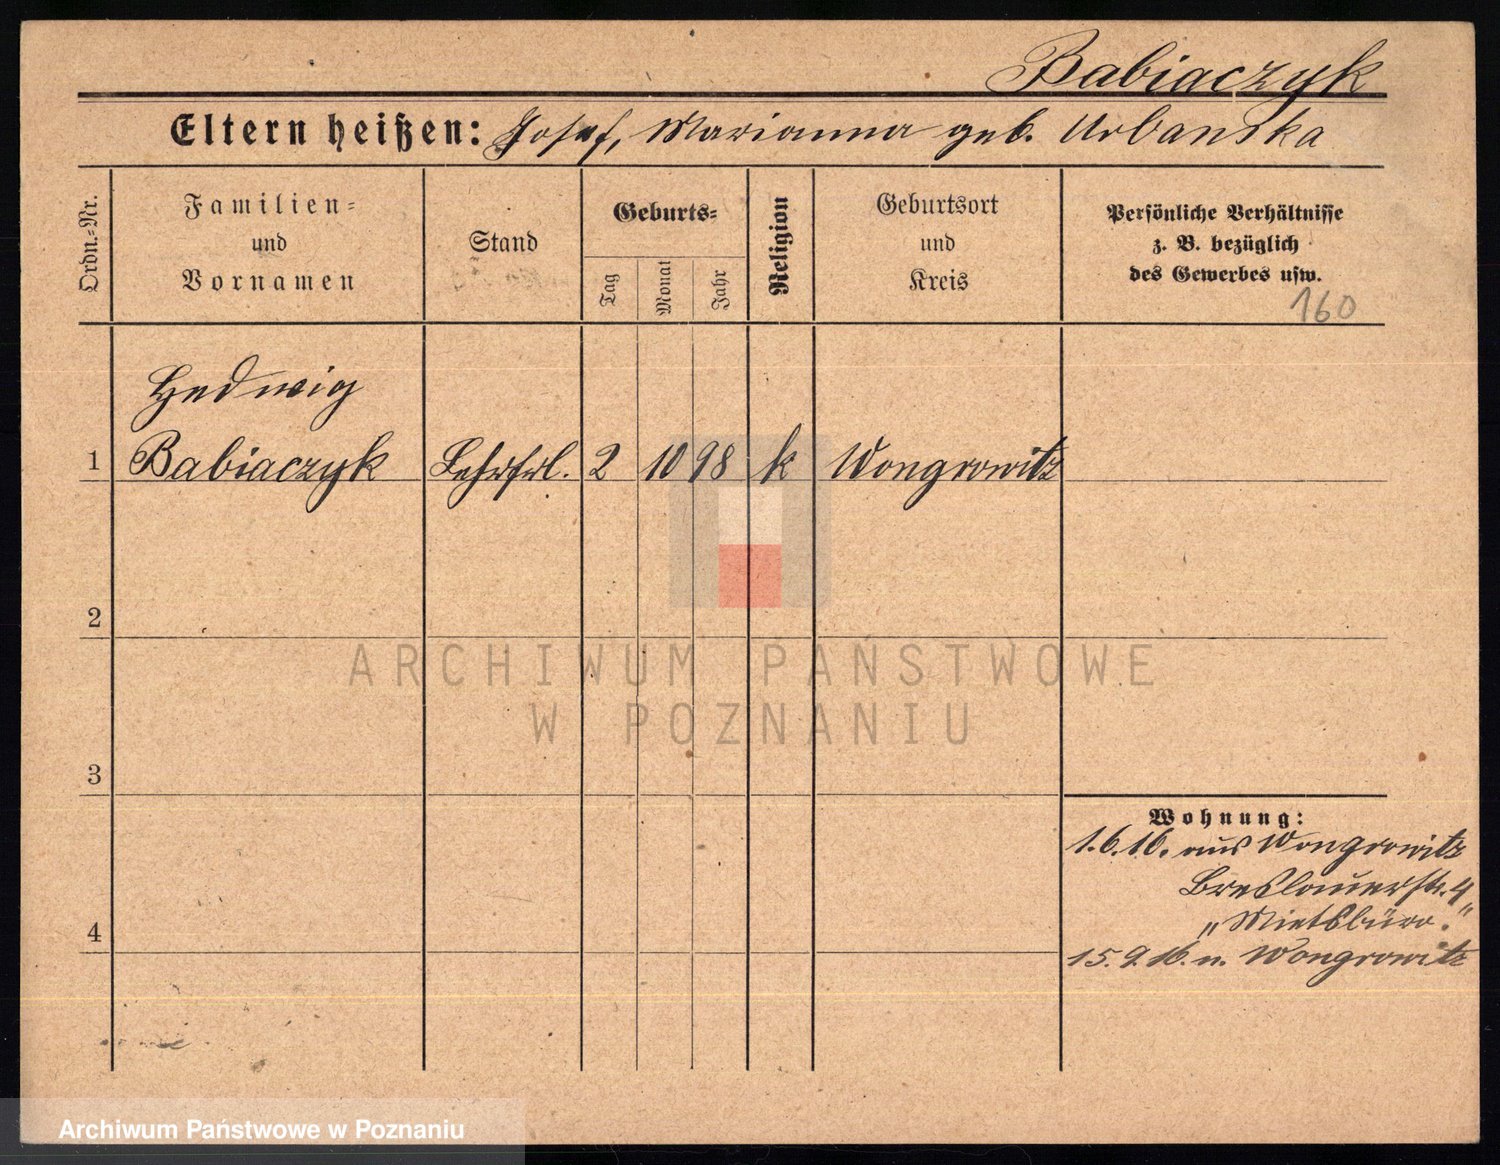 Babiaczyk
Eltern heißen: Josef, Marianna geb. Urbanska
Ordn.=Nr.
Familien=
und
Vornamen
Stand
Geburts=
Tag
Monat
Jahr
Religion
Geburtsort
und
Kreis
Persönliche Verhältnisse
z. B. bezüglich
des Gewerbes usw.
160
Hedwig
1 Babiaczyk Lehrfrl. 2 10 98 k Wongrowitz
2
3
4
Wohnung:
1.6.16. aus Wongrowitz
Breslauerstr. 4
„Mietsbüro."
15.9.16. n. Wongrowitz
ARCHIWUM PAŃSTWOWE
W POZNANIU
Archiwum Państwowe w Poznaniu